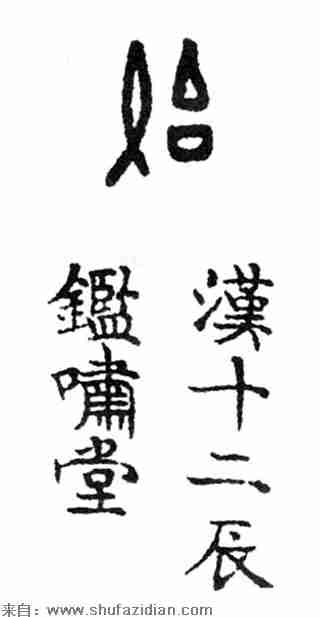 始
漢十二辰
鑑嘯堂
来自：www.shufazidian.com